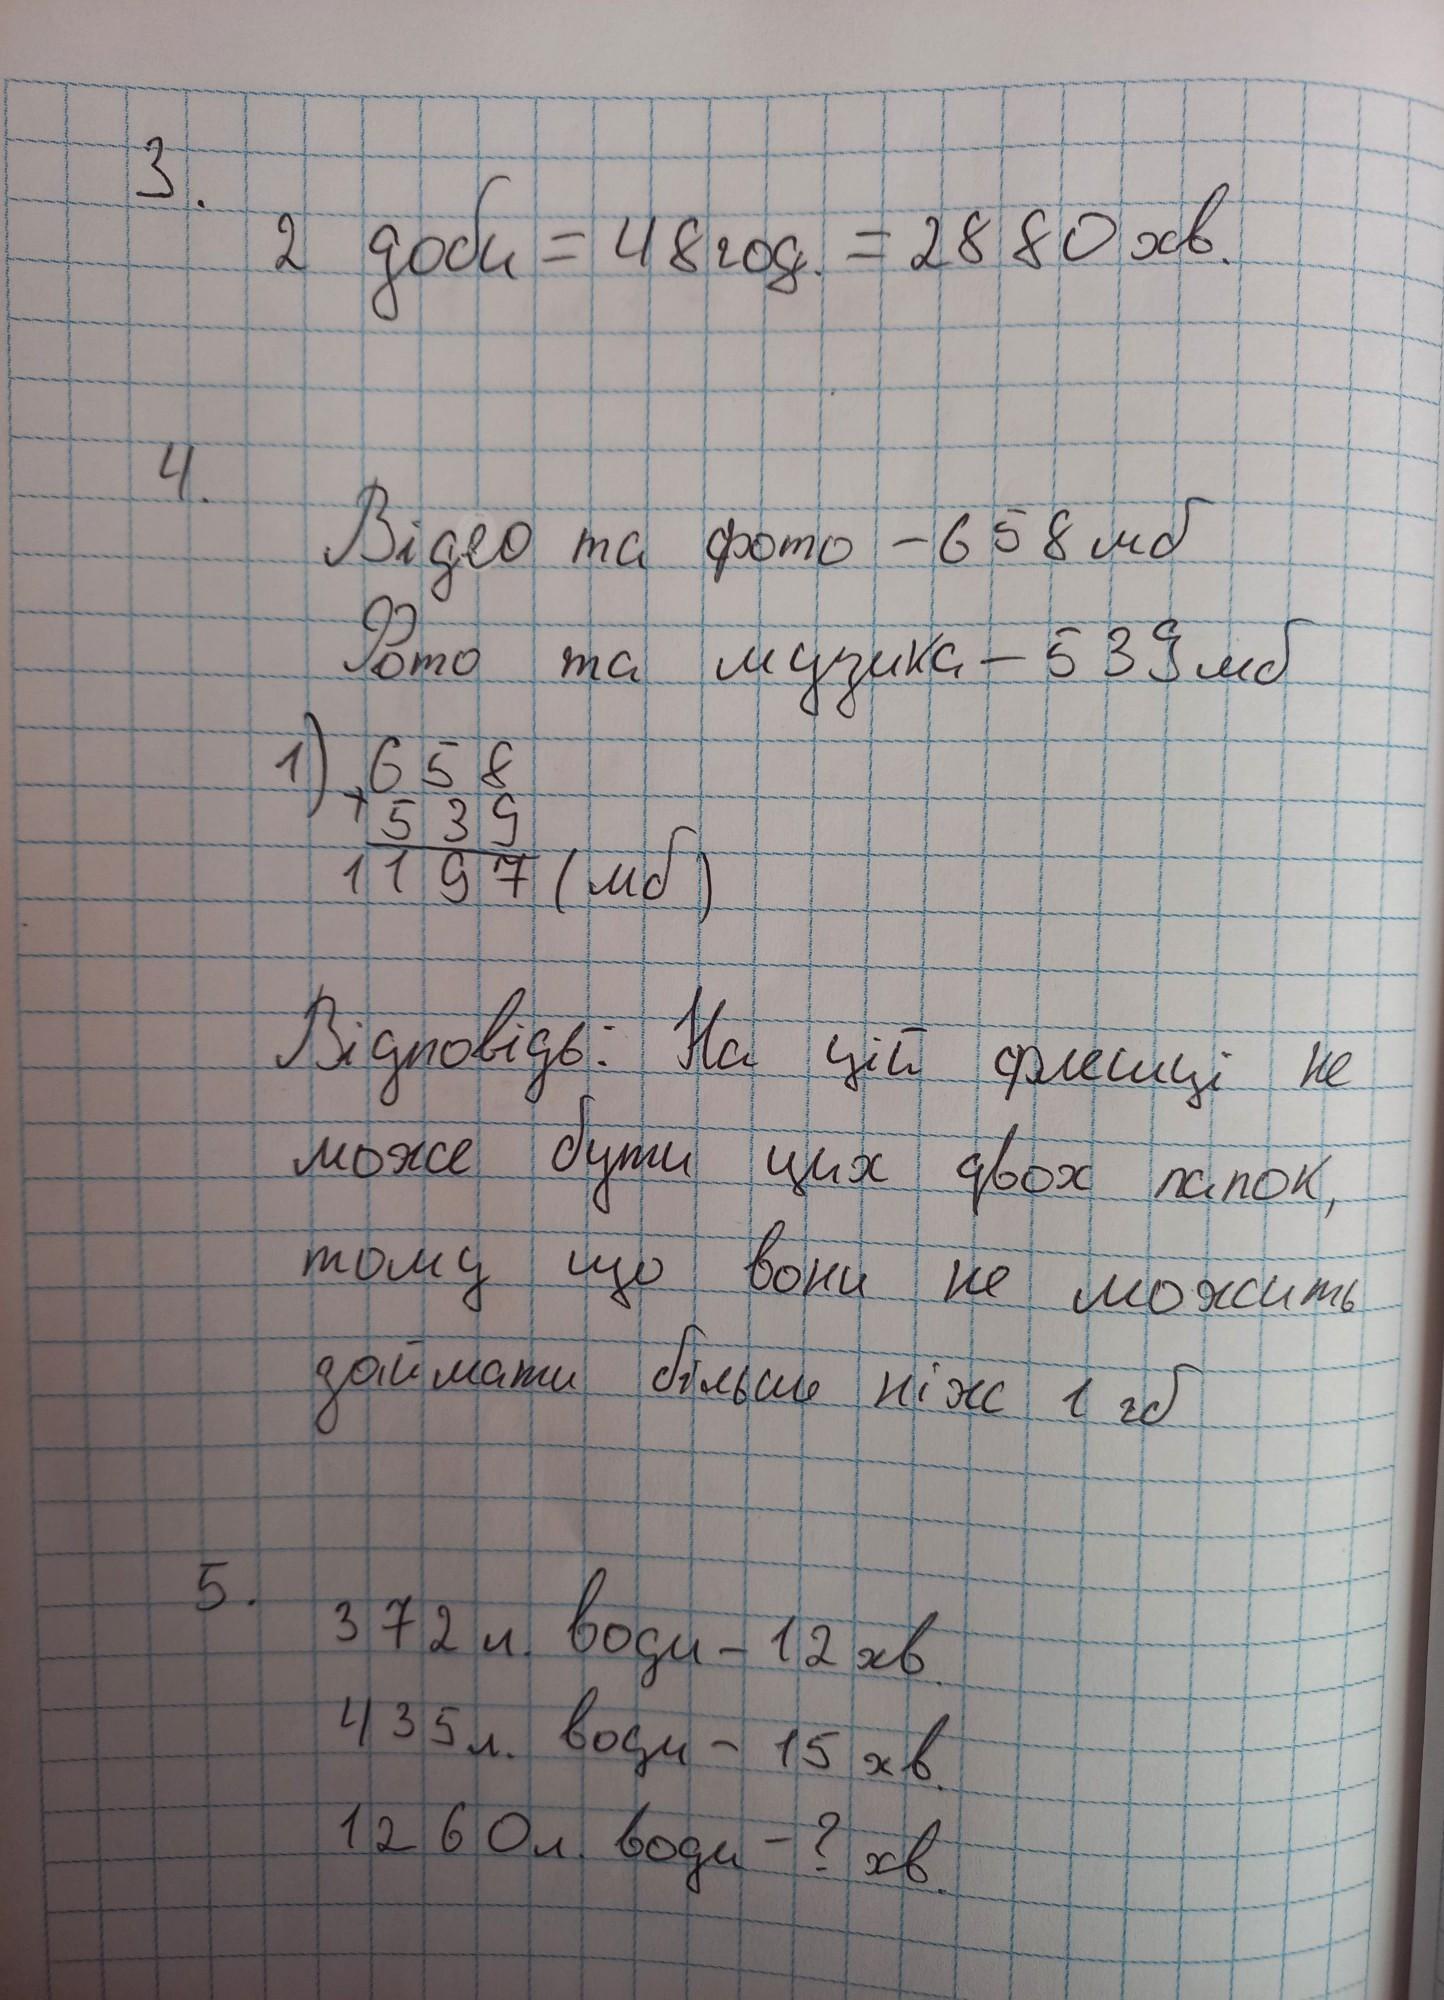 3.
2 доби = 48 год. = 2880 хв.
4.
Відео та фото – 658 мб
Фото та музика – 539 мб
1) 658
+ 539
1197 (мб)
Відповідь: На цій флешці не
може бути цих двох папок,
тому що вони не можить
займати більше ніж 1 гб
5.
372 л. води – 12 хв.
435 л. води – 15 хв.
1260 л. води – ? хв.